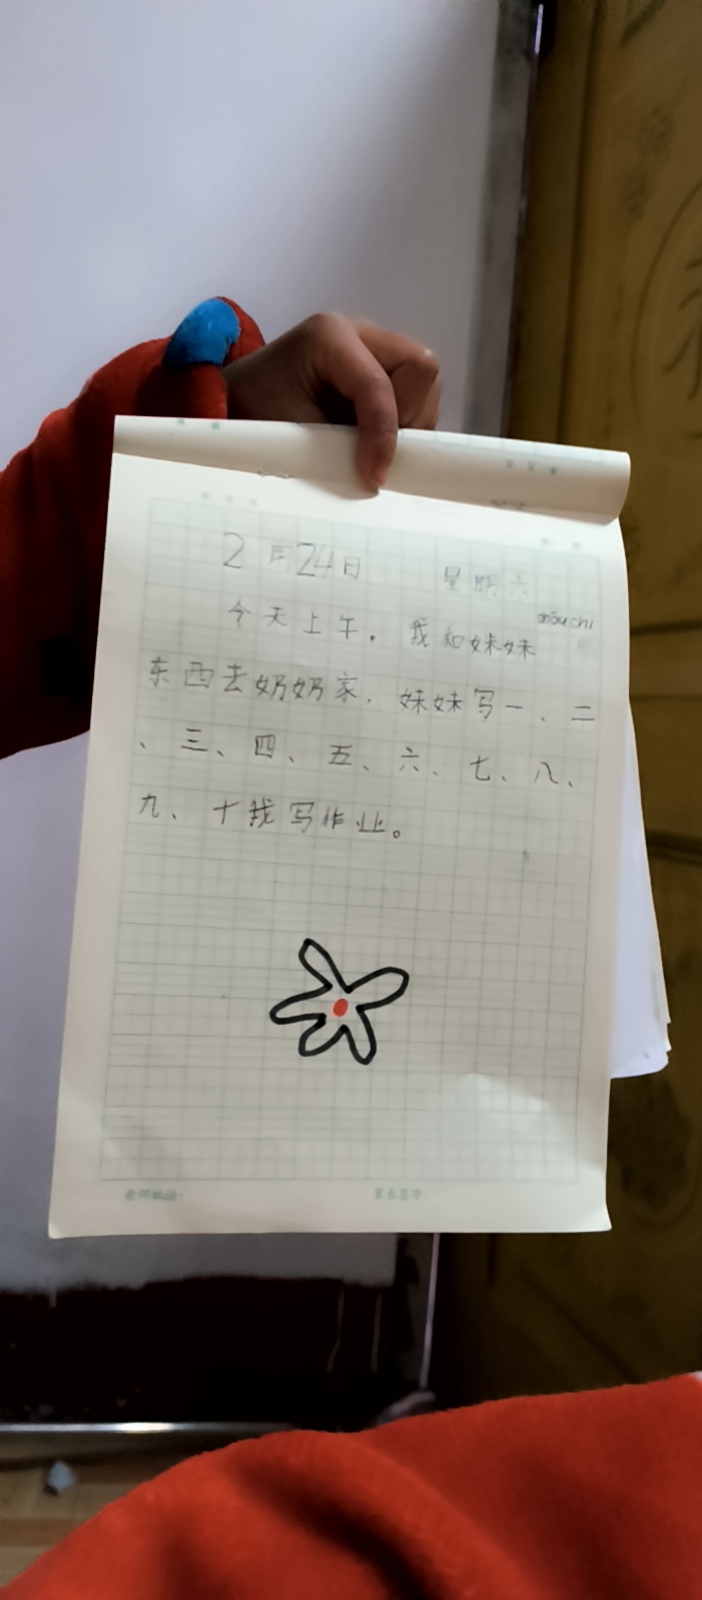 2月24日 星期六
shōu chi
今天上午，我和妹妹
东西去奶奶家，妹妹写一、二
、三、四、五、六、七、八、
九、十我写作业。
老师批语： 家长签字：